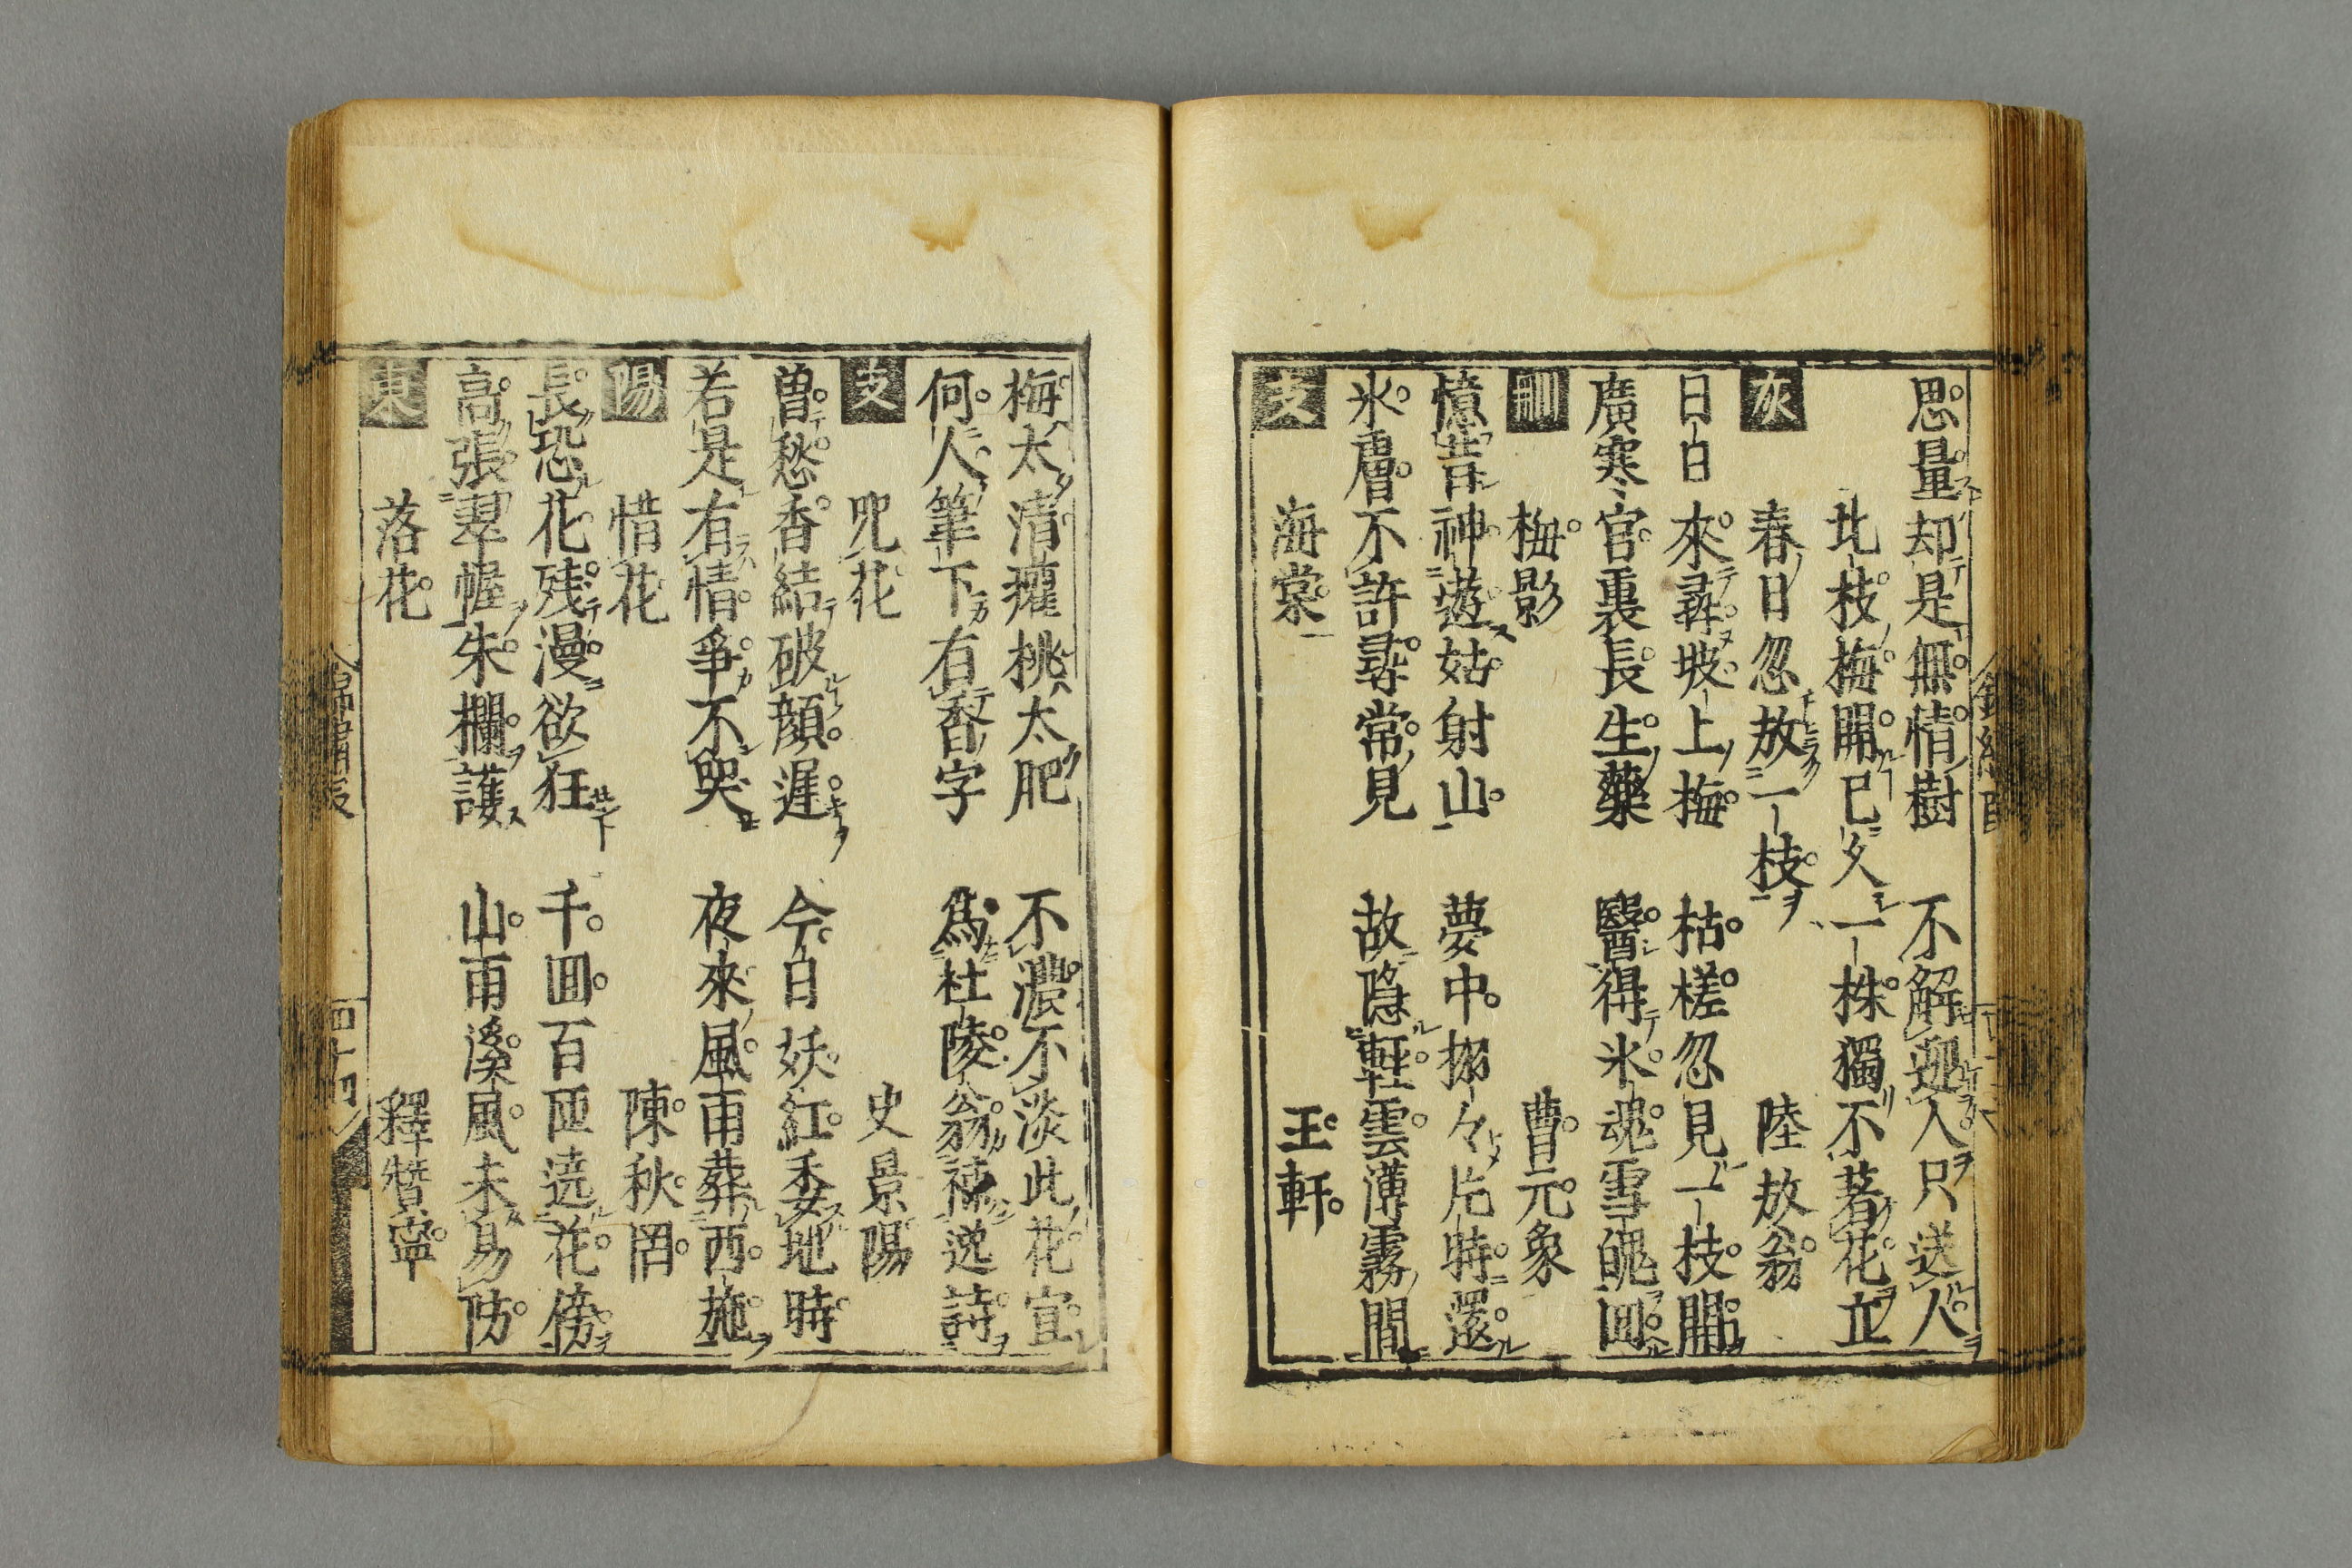 思量却是無情樹　不解迎人只送人
北枝梅開已久一株獨不著花立
灰　春日忽放一枝　陸放翁
日日來尋坡上梅　枯槎忽見一枝開
廣寒宮裏長生藥　醫得氷魂雪魄回
刪　梅影　曹元象
憶昔神遊姑射山　夢中栩々片時還
氷膚不許尋常見　故隱軽雲薄霧間
支　海棠　王軒
梅太清癯桃太肥　不濃不淡此花宜
何人筆下有香字　爲杜陵翁補逸詩
支　咒花　史景陽
曽愁香結破顔遲　今日妖紅委地時
若是有情爭不哭　夜來風雨葬西施
陽　惜花　陳秋岡
長恐花残漫欲狂　千回百匝遶花傍
高張翠幄朱欄護　山雨溪風未易防
東　落花　釋贊寧
錦繍段